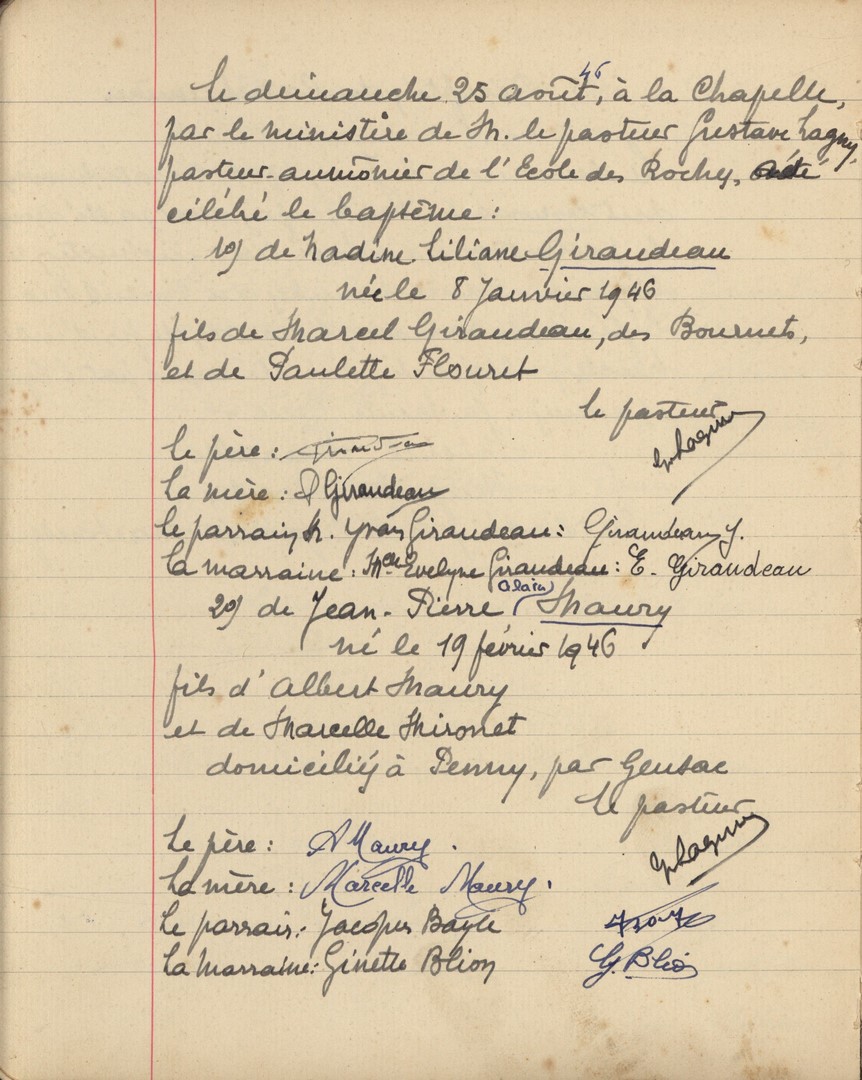 le dimanche 25 août 46, à la Chapelle,
par le ministère de M. le pasteur Gustave Lagny,
pasteur-aumônier de l'Ecole des Roches, a été
célébré le baptême :
1o) de Nadine Liliane Giraudeau
née le 8 Janvier 1946
fils de Marcel Giraudeau, des Bournets,
et de Paulette Flouret
le pasteur
G. Lagny
le père :
La mère : P Giraudeau
le parrain M. Yvan Giraudeau : Giraudeau Y.
La marraine : Melle Evelyne Giraudeau : E. Giraudeau
2o) de Jean-Pierre (Alain) Maury
né le 19 février 1946
fils d'Albert Maury
et de Marcelle Mironet
domiciliés à Penny, par Gensac
le pasteur
G. Lagny
Le père : A Maury.
La mère : Marcelle Maury.
Le parrain : Jacques Bayle
La marraine : Ginette Blion G. Blion